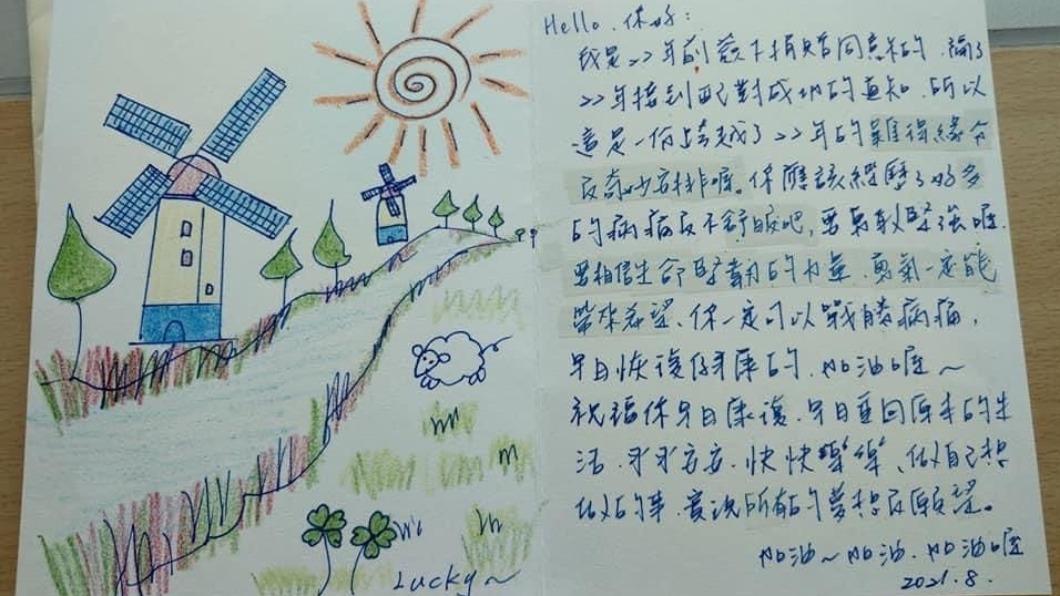 Lucky~
Hello、你好：
我是22年前簽下捐贈同意書的，隔了
22年接到配對成功的通知，所以
這是一份跨越了22年的難得緣分
及奇妙安排喔。你應該經歷了好多
的病痛及不舒服吧，要勇敢堅強喔，
要相信生命堅韌的力量，勇氣一定能
帶來希望、你一定可以戰勝病痛，
早日恢復健康的，加油喔~
祝福你早日康復、早日重回原來的生
活、平平安安、快快樂樂、做自己想
做的事、實現所有的夢想及願望。
加油~加油、加油喔
2021.8.